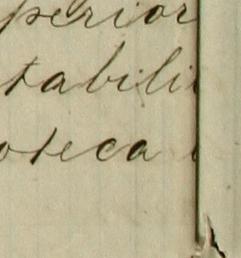 perior
tabili
oteca